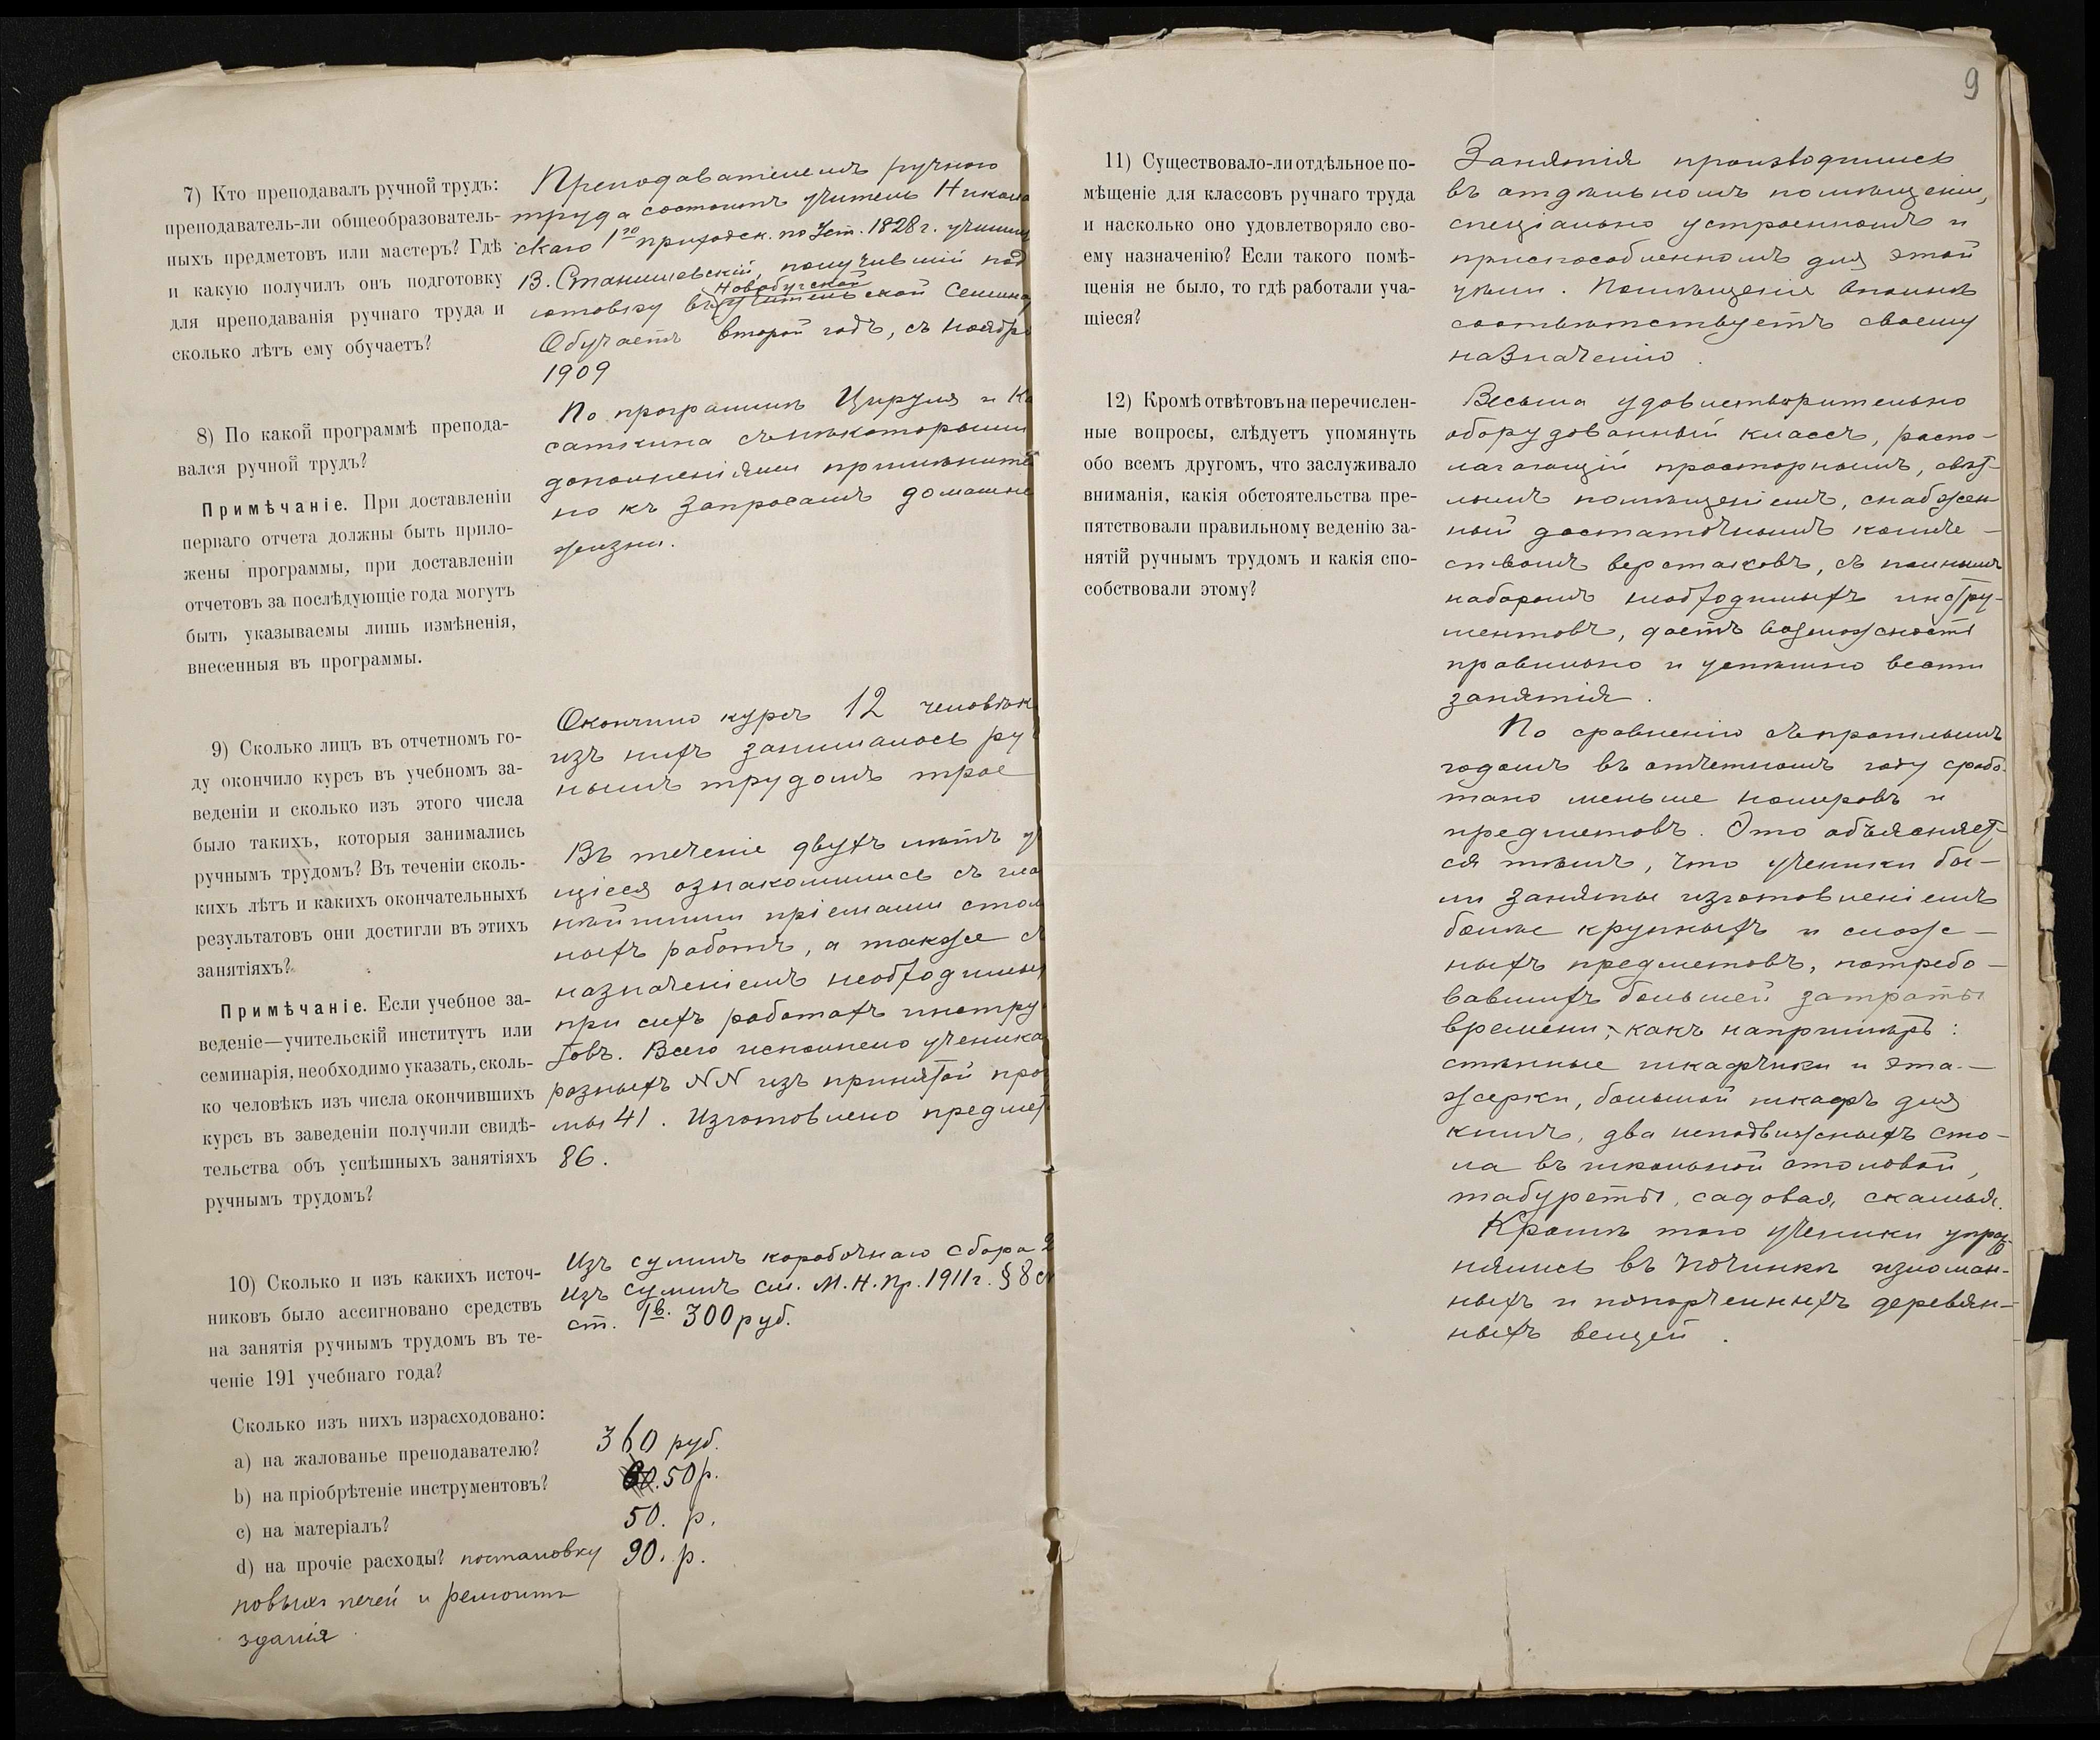 7) Кто преподавалъ ручной трудъ:
преподаватель-ли общеобразователь-
ныхъ предметовъ или мастеръ? Гдѣ
и какую получилъ онъ подготовку
для преподаванія ручнаго труда и
сколько лѣтъ ему обучаетъ?
Преподавателемъ ручного
труда состоитъ учитель Никола
скаго 1го приходск. по Уст. 1828 г. училищ
В. Станишевскій, получившій под
Новобугской
готовку въ учительской Семина
Обучаетъ второй годъ, съ ноября
1909
8) По какой программѣ препода-
вался ручной трудъ?
Примѣчаніе. При доставленіи
перваго отчета должны быть прило-
жены программы, при доставленіи
отчетовъ за послѣдующіе года могутъ
быть указываемы лишь измѣненія,
внесенныя въ программы.
По программѣ Цируля и Ка
саткина съ нѣкоторыми
дополненіями примѣните
но къ запросамъ домашне
жизни.
9) Сколько лицъ въ отчетномъ го-
ду окончило курсъ въ учебномъ за-
веденіи и сколько изъ этого числа
было такихъ, которыя занимались
ручнымъ трудомъ? Въ теченіи сколь-
кихъ лѣтъ и какихъ окончательныхъ
результатовъ они достигли въ этихъ
занятіяхъ?
Примѣчаніе. Если учебное за-
веденіе—учительскій институтъ или
семинарія, необходимо указать, сколь-
ко человѣкъ изъ числа окончившихъ
курсъ въ заведеніи получили свидѣ-
тельства объ успѣшныхъ занятіяхъ
ручнымъ трудомъ?
Окончило курсъ 12 человѣк
изъ нихъ занималось ру
нымъ трудомъ трое
Въ теченіе двухъ лѣтъ у
щіеся ознакомились съ гла
нѣйшими пріемами стол
ныхъ работъ, а также съ
назначеніемъ необходимых
при сихъ работахъ инстру
товъ. Всего исполнено ученика
разныхъ NN изъ принятой про
мы 41. Изготовлено предмет
86.
10) Сколько и изъ какихъ источ-
никовъ было ассигновано средствъ
на занятія ручнымъ трудомъ въ те-
ченіе 191 учебнаго года?
Изъ суммъ коробочнаго сбора 2
Изъ суммъ см. М. Н. Пр. 1911 г. § 8
ст. 1в. 300 руб.
Сколько изъ нихъ израсходовано:
a) на жалованье преподавателю? 360 руб.
b) на пріобрѣтеніе инструментовъ? 50 р.
c) на матеріалъ? 50. р.
d) на прочіе расходы? постановку 90. р.
новыхъ печей и ремонтъ
зданія
9
11) Существовало-ли отдѣльное по-
мѣщеніе для классовъ ручнаго труда
и насколько оно удовлетворяло сво-
ему назначенію? Если такого помѣ-
щенія не было, то гдѣ работали уча-
щіеся?
Занятія производились
въ отдѣльномъ помѣщеніи,
спеціально устроенномъ и
приспособленномъ для этой
цѣли. Помѣщеніе вполнѣ
соотвѣтствуетъ своему
назначенію.
12) Кромѣ отвѣтовъ на перечислен-
ные вопросы, слѣдуетъ упомянуть
обо всемъ другомъ, что заслуживало
вниманія, какія обстоятельства пре-
пятствовали правильному веденію за-
нятій ручнымъ трудомъ и какія спо-
собствовали этому?
Весьма удовлетворительно
оборудованный классъ, распо-
лагающій просторнымъ, свѣт-
лымъ помѣщеніемъ, снабжен
ный достаточнымъ количе-
ствомъ верстаковъ, съ полнымъ
наборомъ необходимыхъ инстру-
ментовъ, даетъ возможность
правильно и успѣшно вести
занятія.
По сравненію съ прошлымъ
годомъ въ отчетномъ году срабо-
тано меньше номеровъ и
предметовъ. Это объясняет-
ся тѣмъ, что ученики бы-
ли заняты изготовленіемъ
болѣе крупныхъ и слож-
ныхъ предметовъ, потребо-
вавшихъ большей затраты
времени, какъ напримѣръ:
стѣнные шкафчики и эта-
жерки, большой шкафъ для
книгъ, два неподвижныхъ сто-
ла въ школьной столовой,
табуреты, садовая скамья.
Кромѣ того ученики упраж-
нялись въ починкѣ изломан-
ныхъ и попорченныхъ деревян-
ныхъ вещей.